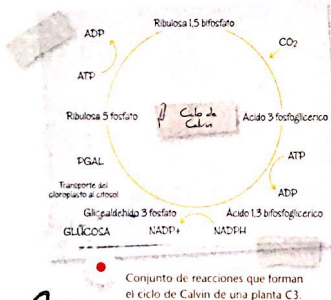 Ribulosa 1,5 bifosfato
ADP
CO2
ATP
Ribulosa 5 fosfato
Ciclo de
Calvin
Ácido 3 fosfoglicerico
PGAL
ATP
Transporte del
cloroplasto al citosol
ADP
Gliceraldehído 3 fosfato
Ácido 1,3 bifosfoglicerico
GLUCOSA
NADP+
NADPH
Conjunto de reacciones que forman
el ciclo de Calvin de una planta C3.